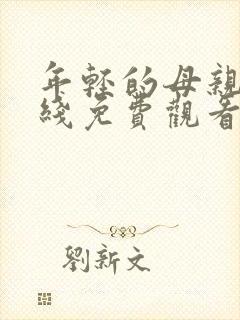 年轻的母亲
綫免費觀看
劉新文